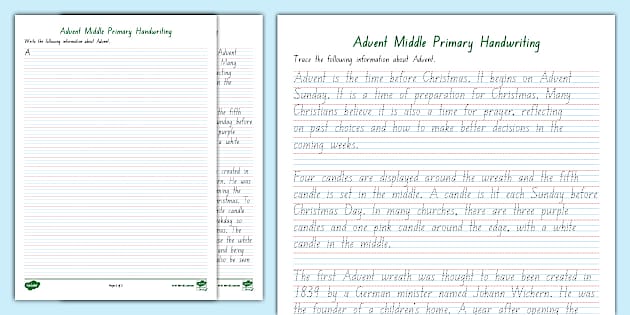 Advent Middle Primary Handwriting
Write the following information about Advent.
A
Advent
Many
the
the fifth
Sunday before
purple
a white
created in
He was
the
christmas. To
candle
so
The
the white
and being
also be seen
Page 1 of 2
Advent Middle Primary Handwriting
Trace the following information about Advent.
Advent is the time before Christmas. It begins on Advent
Sunday. It is a time of preparation for Christmas. Many
Christians believe it is also a time for prayer, reflecting
on past choices and how to make better decisions in the
coming weeks.
Four candles are displayed around the wreath and the fifth
candle is set in the middle. A candle is lit each Sunday before
Christmas Day. In many churches, there are three purple
candles and one pink candle around the edge, with a white
candle in the middle.
The first Advent wreath was thought to have been created in
1839 by a German minister named Johann Wichern. He was
the founder of a children's home. A year after opening the